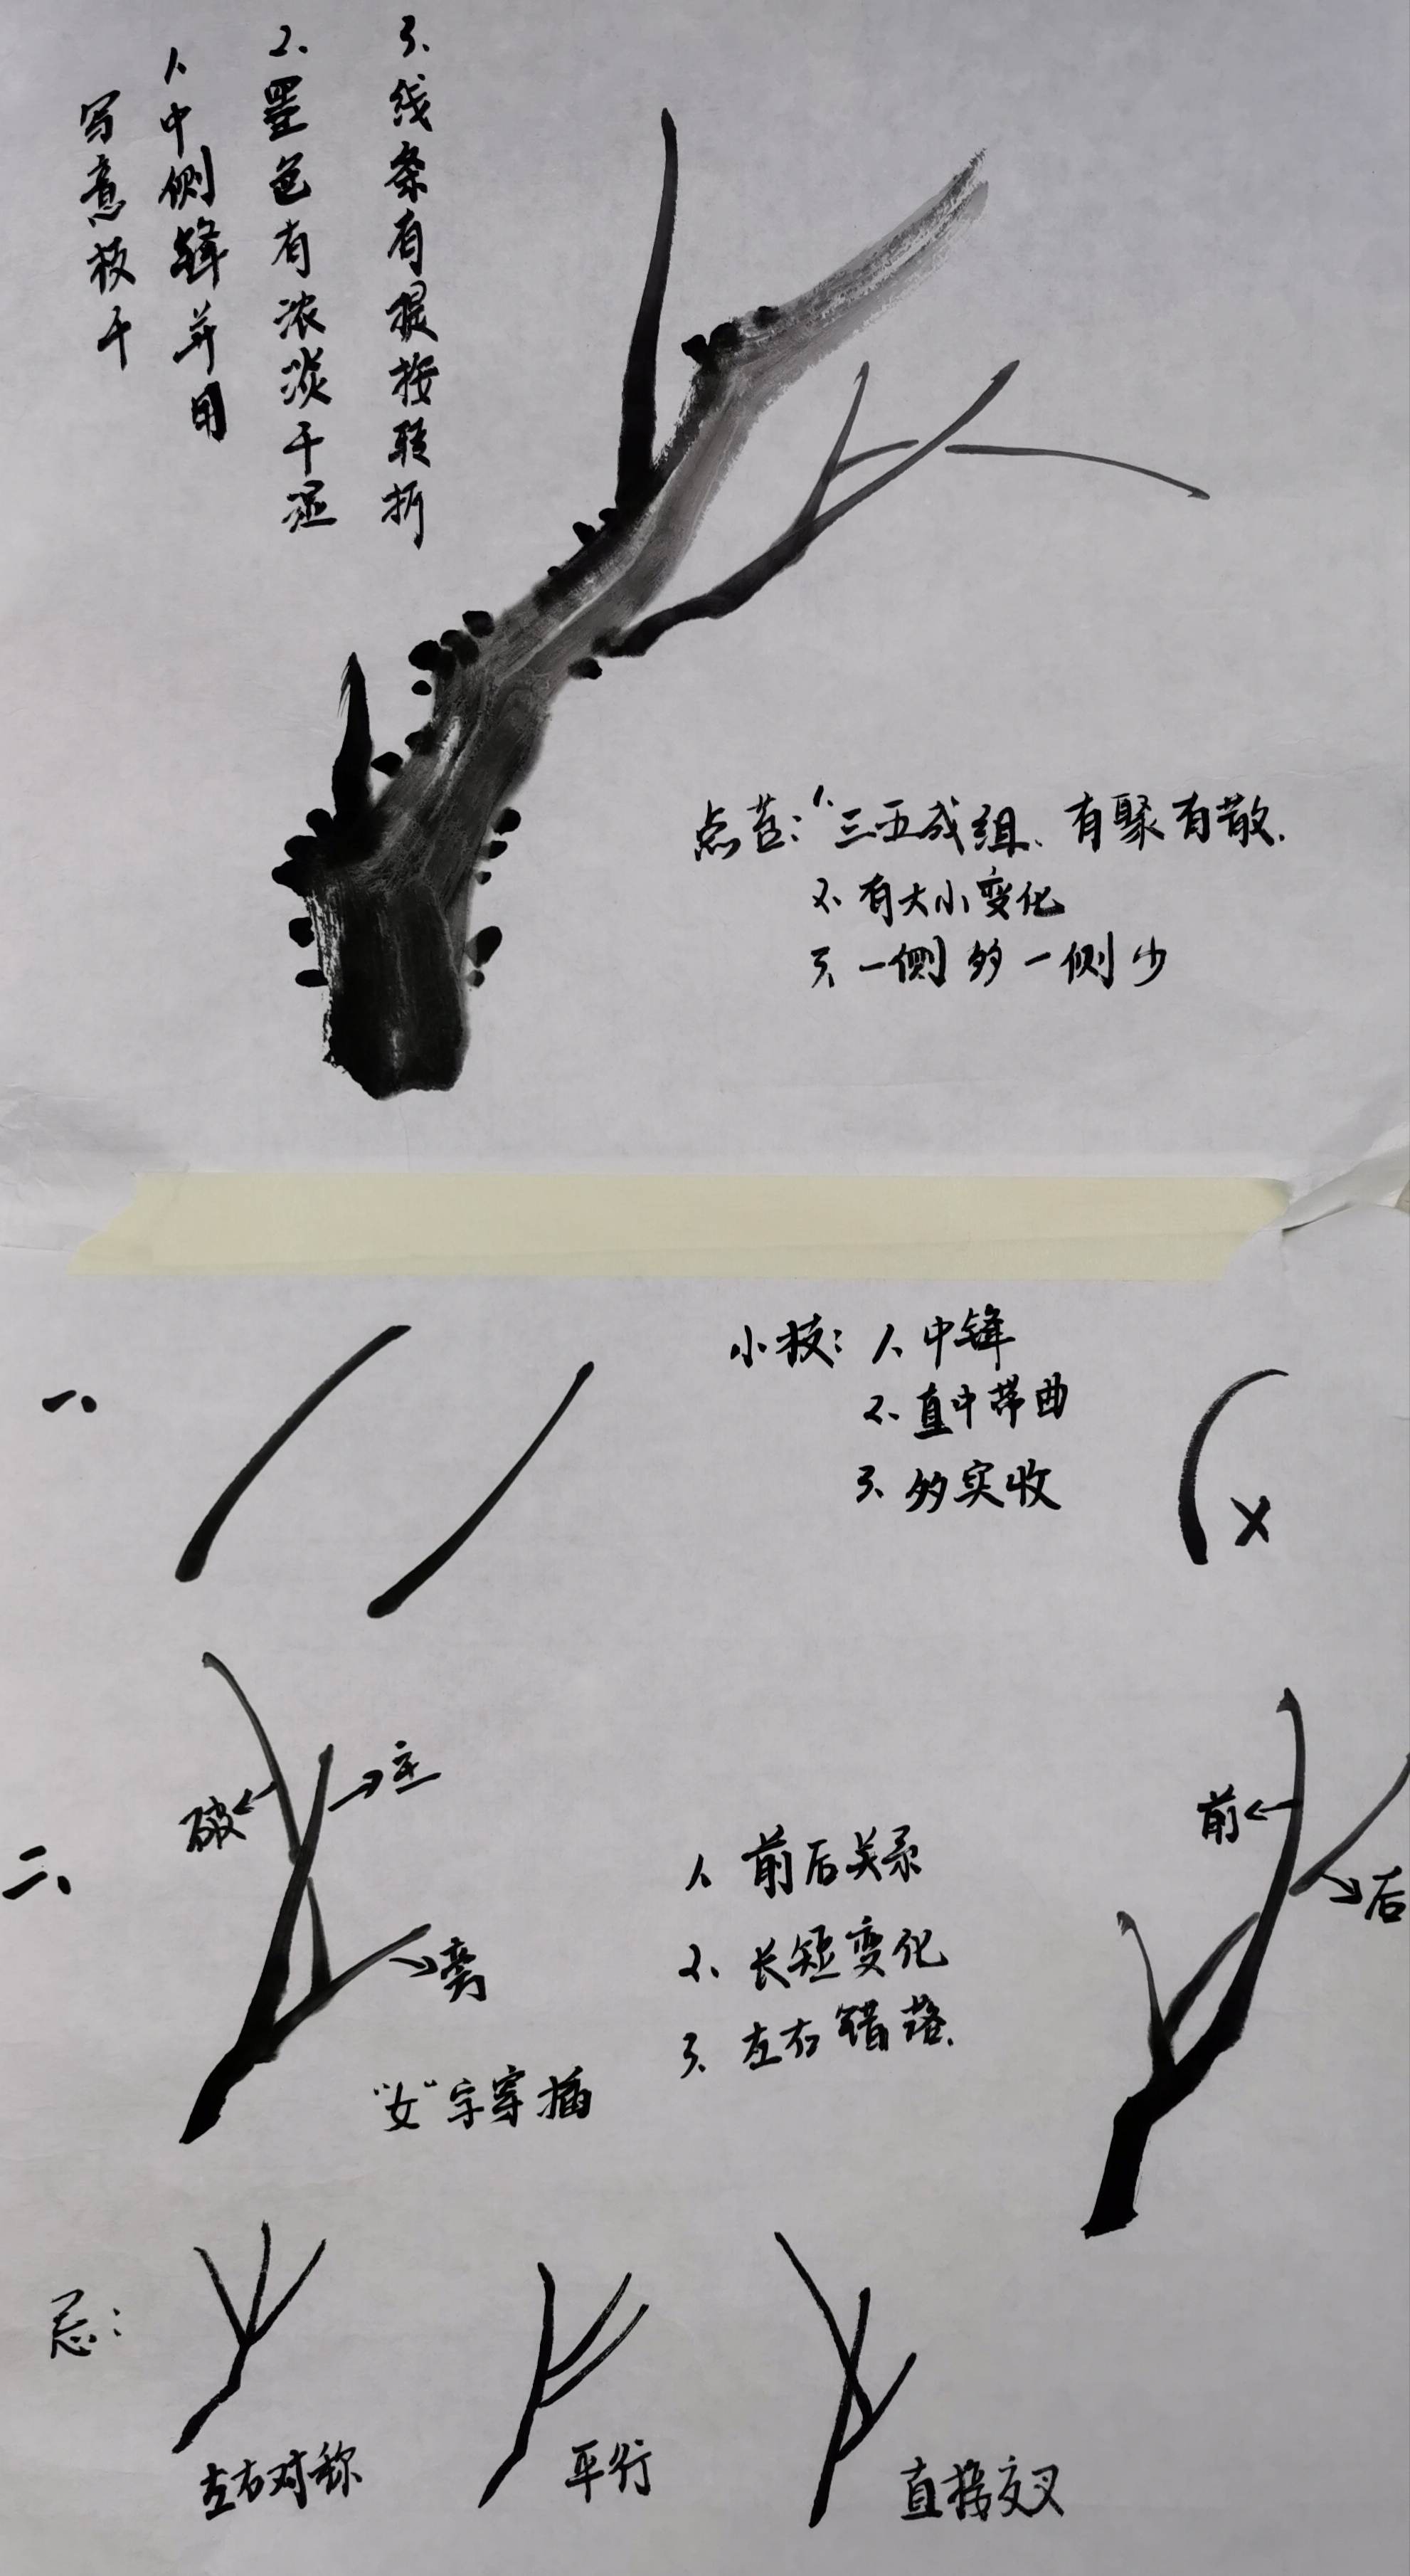 写意枝干
1、中侧锋并用
2、墨色有浓淡干湿
3、线条有提按转折
点苔：1、三五成组、有聚有散.
2、有大小变化
3、一侧多一侧少
一、
小枝：1、中锋
2、直中带曲
3、多实收
X
二、
破
主
弯
"女"字穿插
1、前后关系
2、长短变化
3、左右错落.
前
后
忌：
左右对称
平行
直接交叉